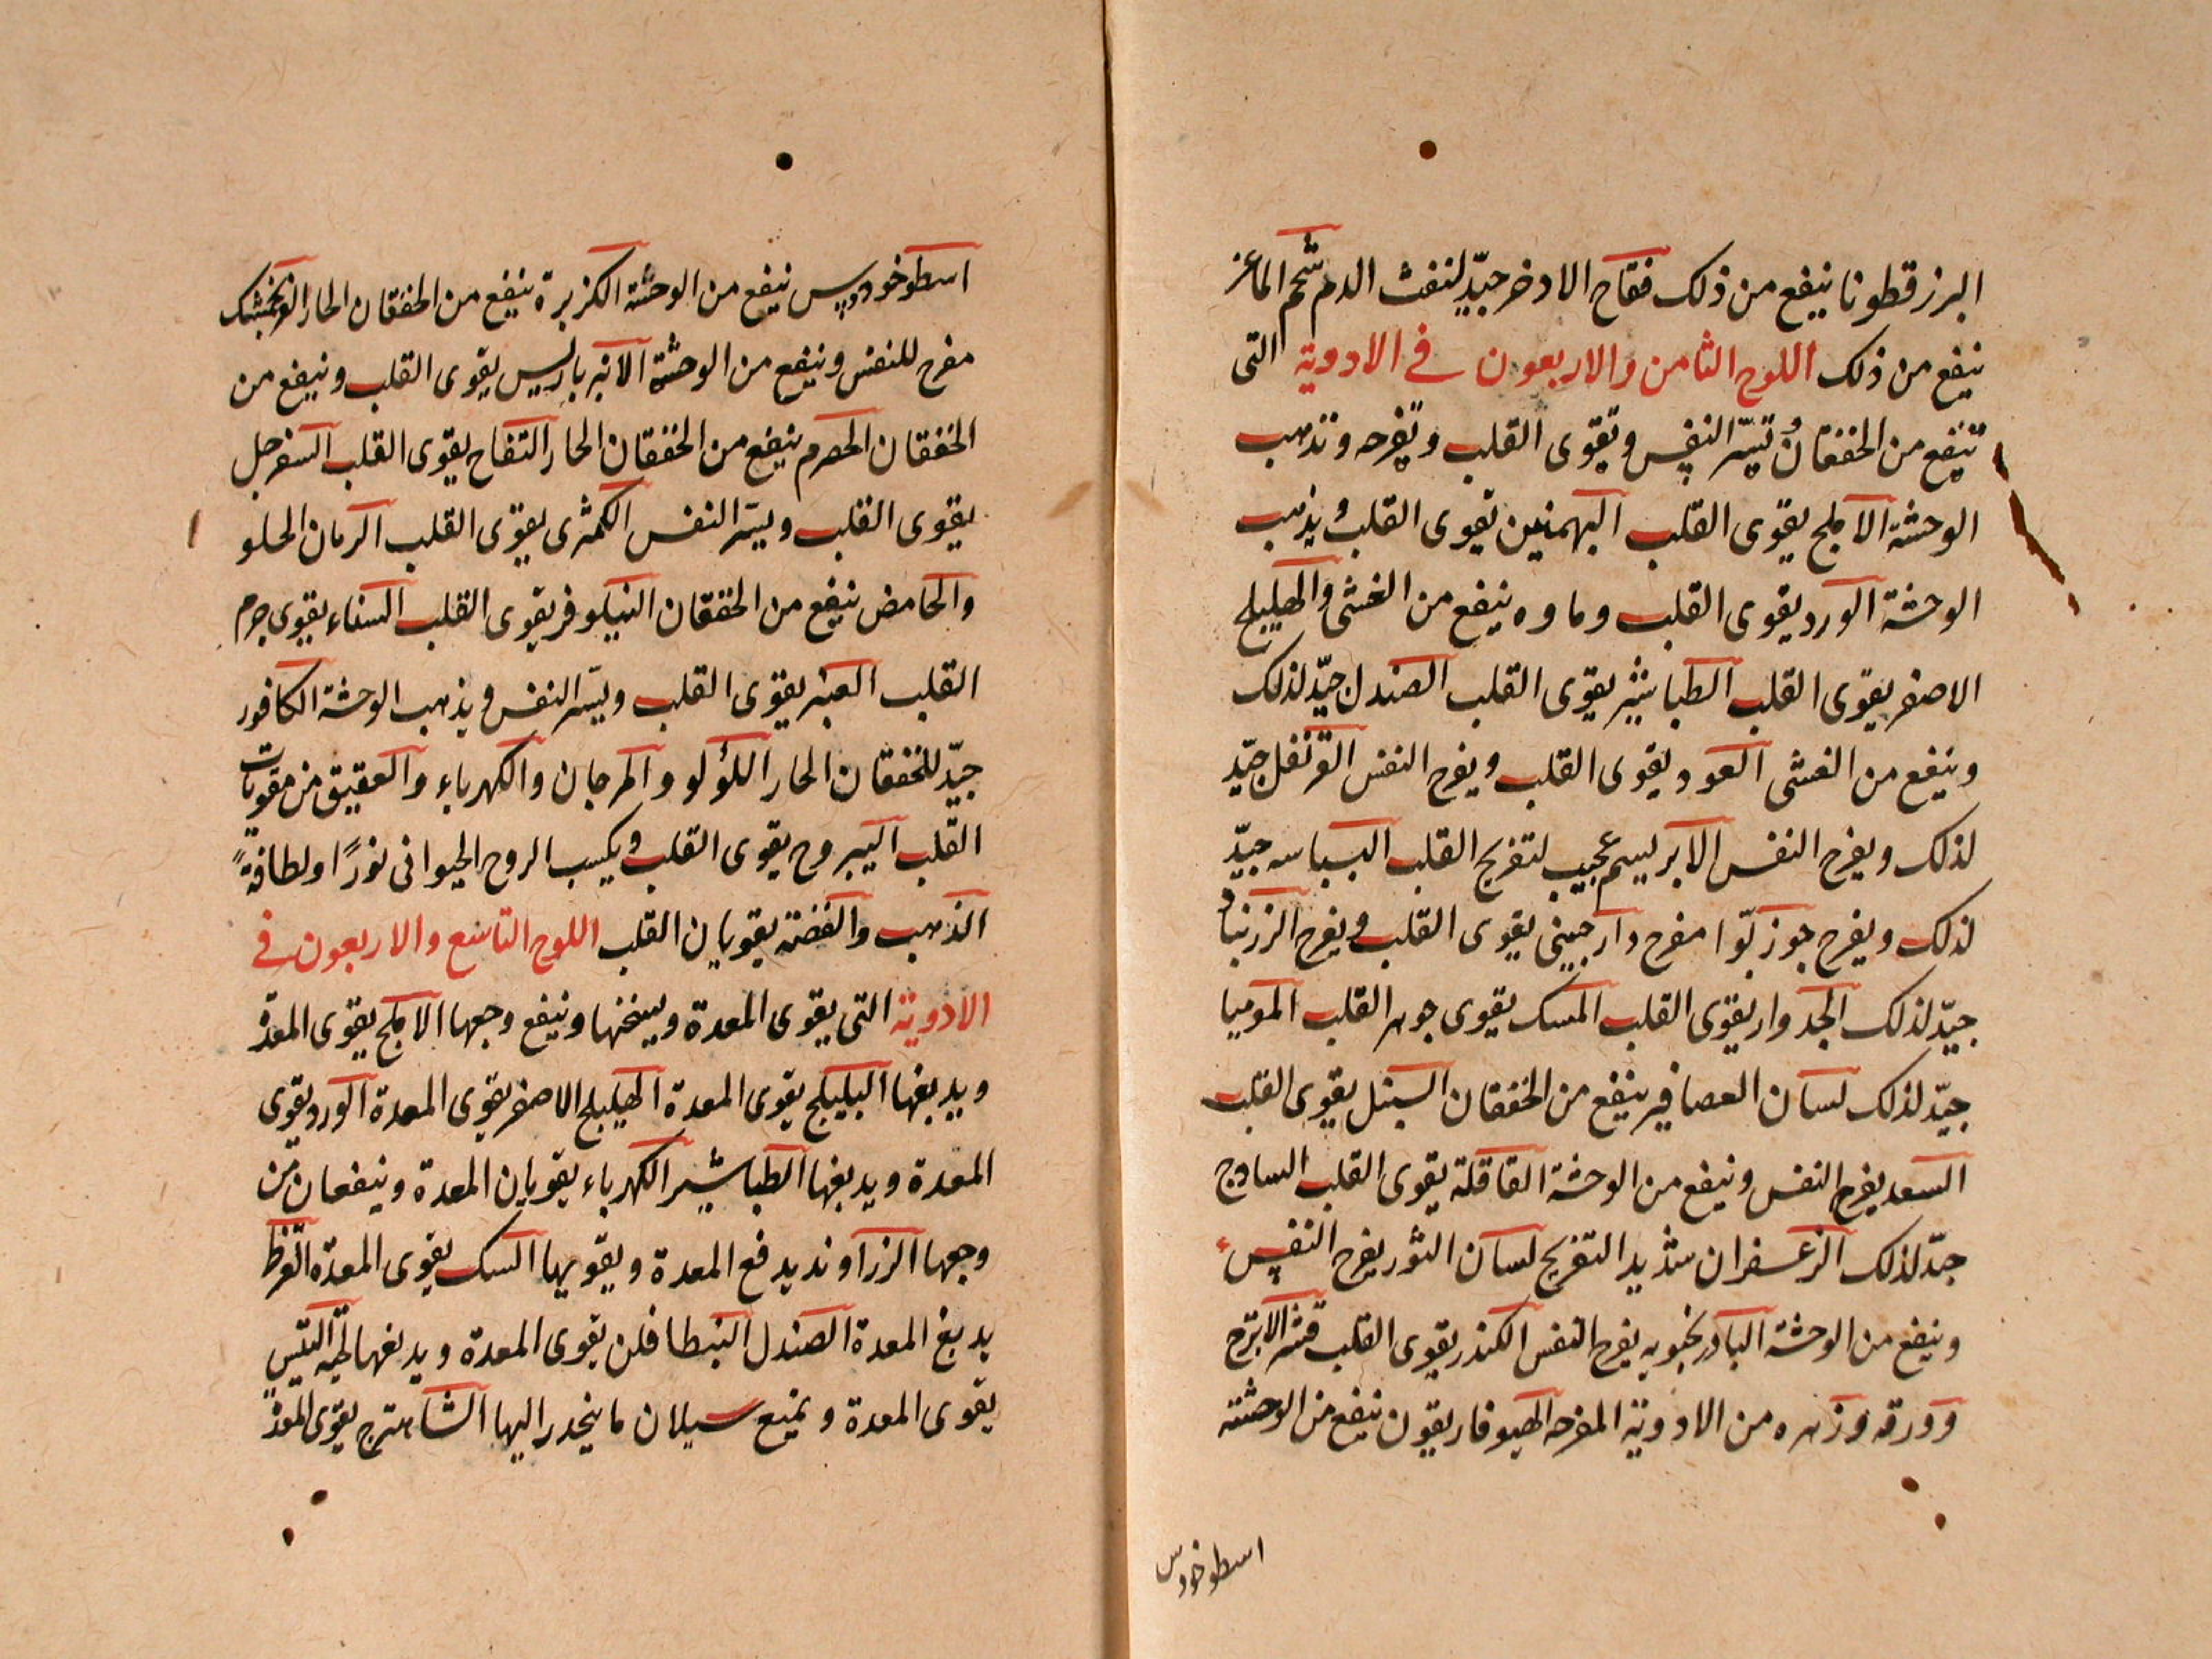 البزرقطونا ينفع من ذلك فقاح الادخر جيّد لنفث الدم شحم الماعز
ينفع من ذلك اللوح الثامن والاربعون في الادوية التى
تنفع من الخفقان وتسرّ النفس وتقوى القلب وتفرحه وتذهب
الوحشة الاملج يقوى القلب البهمنين يقوى القلب ويذهب
الوحشة الورد يقوى القلب وماوه ينفع من الغشى والهليلج
الاصفر يقوى القلب الطباشير يقوى القلب الصندل جيّد لذلك
وينفع من الغشى العود يقوى القلب ويفرح النفس القرنفل جيّد
لذلك ويفرح النفس الابريسم عجيب لتفريح القلب البسباسه جيّد
لذلك ويفرح جوزبوّا مفرح دارجينى يقوى القلب ويفرح الزرنباد
جيّد لذلك الجدوار يقوى القلب المسك يقوى جوهر القلب الموميا
جيّد لذلك لسان العصافير ينفع من الخفقان السنبل يقوى القلب
السعد يفرح النفس وينفع من الوحشة القاقلة يقوى القلب السادج
جيّد لذلك الزعفران شديد التفريح لسان الثور يفرح النفس
وينفع من الوحشة البادرنجبويه يفرح النفس الكندر يقوى القلب قشر الاترج
وورقه وزهره من الادوية المفرحه الهيوفاريقون ينفع من الوحشته
اسطوخودس
اسطوخودوس ينفع من الوحشة الكزبرة ينفع من الخفقان الحار الفرنجمشك
مفرح للنفس وينفع من الوحشة الانبرباريس يقوى القلب وينفع من
الخفقان الحصرم ينفع من الخفقان الحار التفاح يقوى القلب السفرجل
يقوى القلب ويسرّ النفس الكمثرى يقوى القلب الرمان الحلو
والحامض ينفع من الخفقان النيلوفر يقوى القلب السناء يقوى جرم
القلب العنبر يقوى القلب ويسرّ النفس ويذهب الوحشة الكافور
جيّد للخفقان الحار اللؤلو والمرجان والكهرباء والعقيق من مقويات
القلب اليبروح يقوى القلب ويكسب الروح الحيوانى نورًا ولطافةً
الذهب والفضة يقويان القلب اللوح التاسع والاربعون في
الادوية التى يقوى المعدة ويسخنها وينفع وجعها الاملج يقوى المعدة
ويدبغها البليلج يقوى المعدة الهليلج الاصفر يقوى المعدة الورد يقوى
المعدة ويدبغها الطباشير الكهرباء يقويان المعدة وينفعان من
وجعها الزراوند يدفع المعدة ويقويها السك يقوى المعدة القرظ
يدبغ المعدة الصندل البنطافلن يقوى المعدة ويدبغها لحية التيس
يقوى المعدة ويمنع سيلان ما ينحدر اليها الشاهترج يقوى المعدة